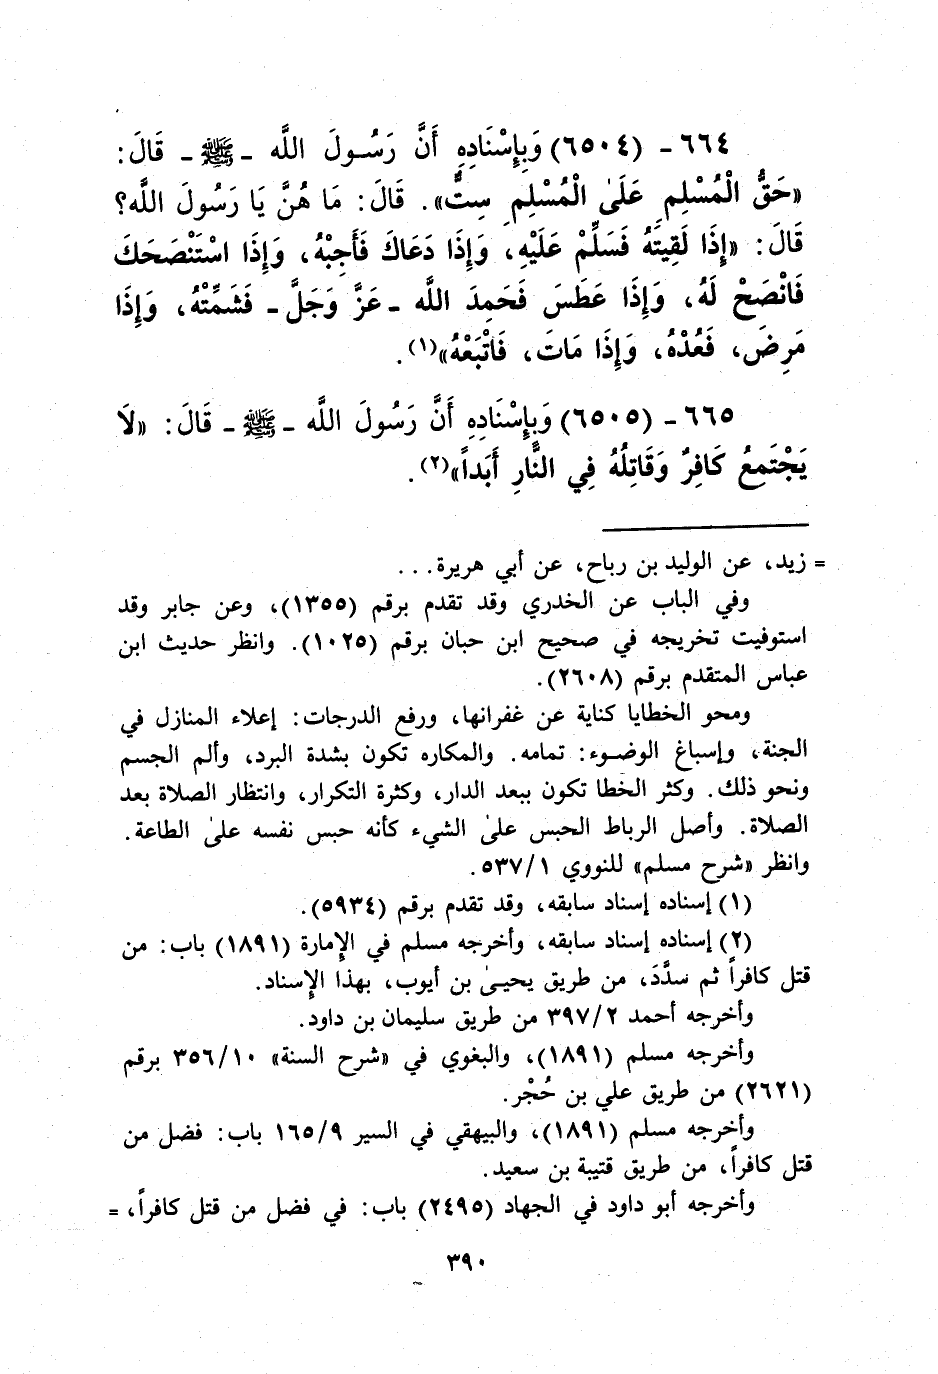 ٦٦٤ - (٦٥٠٤) وَبِإِسْنَادِهِ أَنَّ رَسُولَ اللَّه - ﷺ - قَالَ:
«حَقُّ الْمُسْلِمِ عَلَىٰ الْمُسْلِمِ سِتٌّ». قَالَ: مَا هُنَّ يَا رَسُولَ اللَّه؟
قَالَ: «إِذَا لَقِيتَهُ فَسَلِّمْ عَلَيْهِ، وَإِذَا دَعَاكَ فَأَجِبْهُ، وَإِذَا اسْتَنْصَحَكَ
فَانْصَحْ لَهُ، وَإِذَا عَطَسَ فَحَمِدَ اللَّه - عَزَّ وَجَلَّ - فَشَمِّتْهُ، وَإِذَا
مَرِضَ، فَعُدْهُ، وَإِذَا مَاتَ، فَاتْبَعْهُ»(١).
٦٦٥ - (٦٥٠٥) وَبِإِسْنَادِهِ أَنَّ رَسُولَ اللَّه - ﷺ - قَالَ: «لَا
يَجْتَمِعُ كَافِرٌ وَقَاتِلُهُ فِي النَّارِ أَبَداً»(٢).
= زيد، عن الوليد بن رباح، عن أبي هريرة...
وفي الباب عن الخدري وقد تقدم برقم (١٣٥٥)، وعن جابر وقد
استوفيت تخريجه في صحيح ابن حبان برقم (١٠٢٥). وانظر حديث ابن
عباس المتقدم برقم (٢٦٠٨).
ومحو الخطايا كناية عن غفرانها، ورفع الدرجات: إعلاء المنازل في
الجنة، وإسباغ الوضوء: تمامه. والمكاره تكون بشدة البرد، وألم الجسم
ونحو ذلك. وكثر الخطا تكون ببعد الدار، وكثرة التكرار، وانتظار الصلاة بعد
الصلاة. وأصل الرباط الحبس علىٰ الشيء كأنه حبس نفسه علىٰ الطاعة.
وانظر «شرح مسلم» للنووي ٥٣٧/١.
(١) إسناده إسناد سابقه، وقد تقدم برقم (٥٩٣٤).
(٢) إسناده إسناد سابقه، وأخرجه مسلم في الإمارة (١٨٩١) باب: من
قتل كافراً ثم سدَّدَ، من طريق يحيىٰ بن أيوب، بهذا الإسناد.
وأخرجه أحمد ٣٩٧/٢ من طريق سليمان بن داود.
وأخرجه مسلم (١٨٩١)، والبغوي في «شرح السنة» ٣٥٦/١٠ برقم
(٢٦٢١) من طريق علي بن حُجْر.
وأخرجه مسلم (١٨٩١)، والبيهقي في السير ١٦٥/٩ باب: فضل من
قتل كافراً، من طريق قتيبة بن سعيد.
وأخرجه أبو داود في الجهاد (٢٤٩٥) باب: في فضل من قتل كافراً، =
٣٩٠